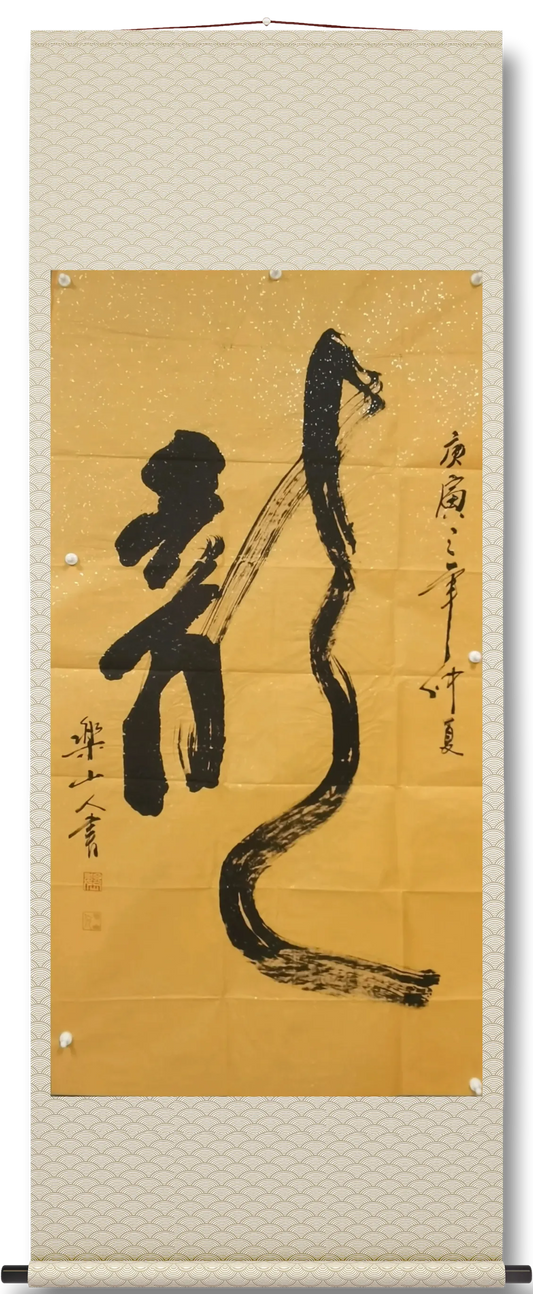 庚寅之年仲夏
龍
樂山人書